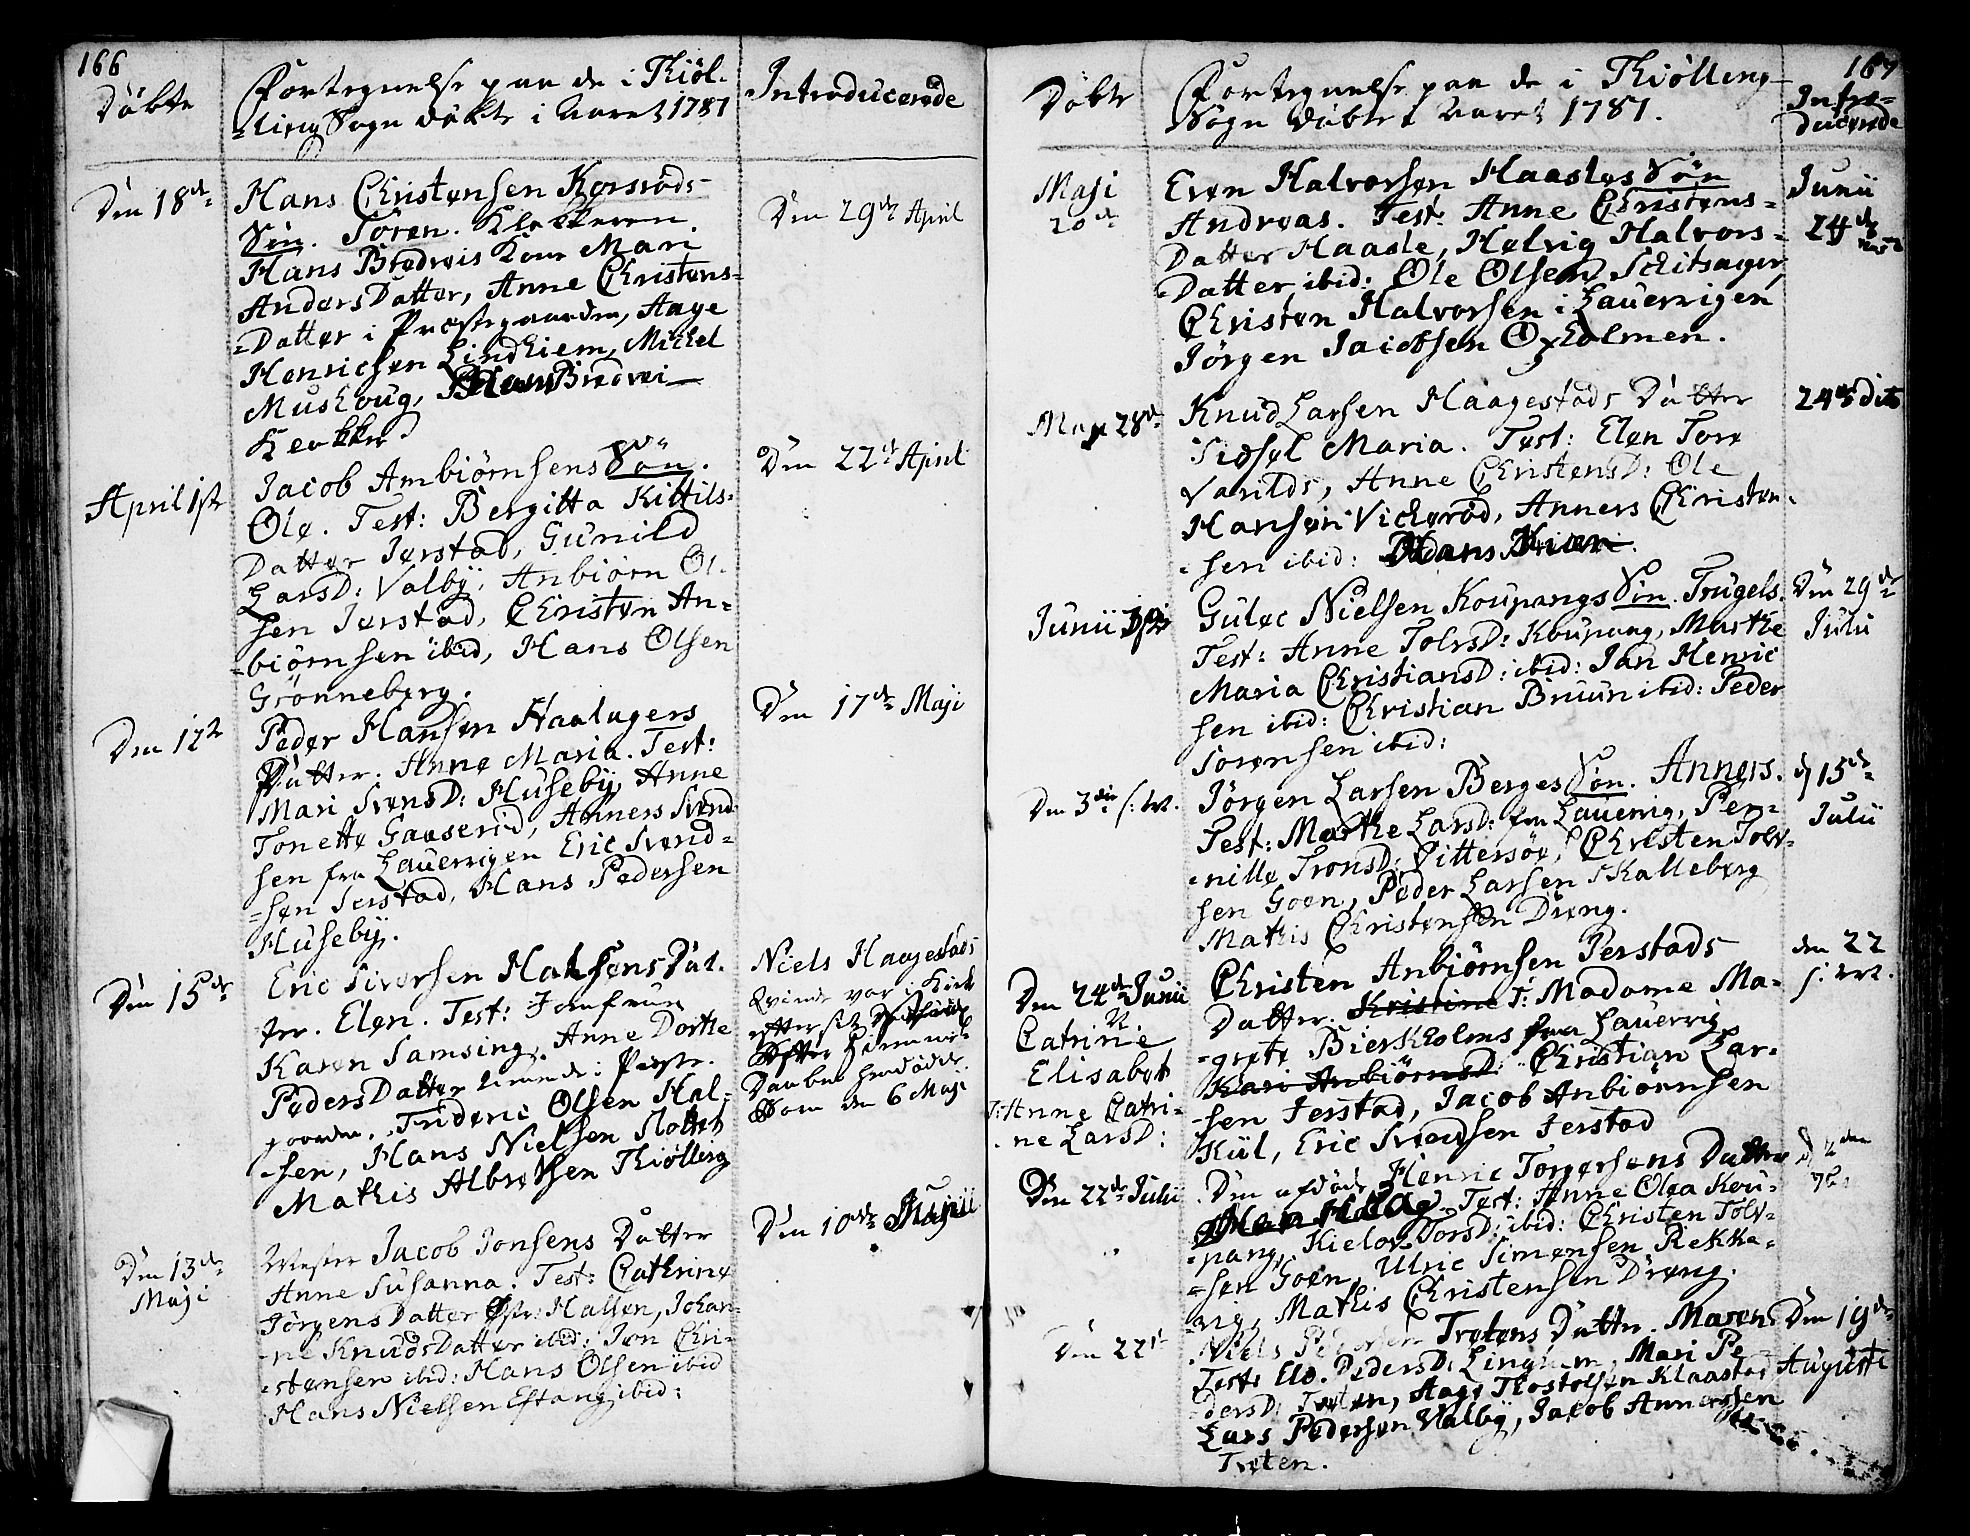 166
Döbte
Fortegnelse paa de i Thiöl-
-ling Sogn döbte i Aaret 1787
Introducerede
Den 18de
Hans Christensen Korsröds
Sön. Sören. Klokkeren
Hans Bredveis Kone Mari
Anders Datter, Anne Christens-
-Datter i Præstegaarden, Aage
Henrichsen Lindhiem, Michel
Mushoug, Hans Bredvei
Klokker
Den 29de April
April 1ste
Jacob Ambiörnsens Sön.
Ole. Test: Bergitta Kittils-
Datter Jerstad, Gunild
LarsD: Valbÿ, Anbiörn Ol-
sen Jerstad, Christen An-
-biörnsen ibid, Hans Olsen
Grönneberg.
Den 22de April
Den 12te
Peder Hansen Haalagers
Datter. Anne Maria. Test:
Mari SvensD: Husebÿ, Anne
Tonette Gaaserid, Anners Svend-
sen fra Lauerrigen Eric Svend-
-sen Jerstad, Hans Pedersen
Husebÿ.
Den 17de Maji
Den 15de
Eric Iversen Halsens Dat-
ter. Elen. Test: Jomfrue
Karen Samsing, Anne Dorthe
PedersDatter tienende i Præste-
gaarden, Frideric Olsen Hal-
-sen, Hans Nielsen Slottet
Mathis Albretsen Thiölling
Niels Haagestads
Qvinde var i Kirke
efter sit
Efter hiemme
Daaben döde
Som den 6 Maji
Den 13de
Maji
Mester Jacob Jonsens Datter
Anne Susanna. Test: Cathrine
Jörgens Datter Östr: Halsen, Johan-
-ne KnudsDatter ibid: Jon Chri-
-stensen ibid: Hans Olsen ibid
Hans Nielsen Eftang ibid:
Den 10de Junii
167
Döbte
Fortegnelse paa de i Thiölling
Sogn döbte i Aaret 1787.
Intro-
ducerede
Maji
20de
Even Halvorsen Haasles Sön
Andreas. Test: Anne Christens-
Datter Haasle, Helvig Halvors-
-Datter ibid: Ole Olsen Schitsager,
Christen Halvorsen i Lauerrigen
Jörgen Jacobsen Oxholmen.
Junii
24de
Maji 28de
Knud Larsen Haagestads Datter
Sidsel Maria. Test: Elen Tore
Varilds, Anne ChristensD: Ole
Hansen Vickeröd, Anners Christen-
-sen ibid: Hans Kiær
24de dito
Junii 1ste
Guloc Nielsen Koupangs Sön. Trugels.
Test: Anne TolvsD: Koupang, Marthe
Maria ChristiansD: ibid: Jan Henric
sen ibid: Christian Bruun ibid: Peder
Sörensen ibid:
Den 29de
Julii
Den 3die s: M.
Jörgen Larsen Berges Sön. Anners.
Test: Marthe LarsD: fra Lauerrig, Per-
-nille TronsD: Vittersöe, Christen Tolv-
sen Goen, Peder Larsen Skalleberg
Mathis Christensen Dreng.
d 15de
Julii
Den 24de Junii
N.
Catrine
Elisabet
T: Anne Catri-
-ne LarsD:
Christen Anbiörnsen Jerstads
Datter. Kristine T: Madame Ma-
-grete Bierkholms fra Lauerrig
Kari AnbiörnsD: Christian Lar-
-sen Jerstad, Jacob Anbiörnsen
Kiil, Eric Svendsen Jerstad
den 22
s: M.
Den 22de Julii
Den Henric Torgersens Datter
Test: Anne Olea Kou-
-pang, Kielov TorsD: ibid: Christen Tolv-
-sen Goen, Ulric Simonsen Rekka-
-vig, Mathis Christensen Dreng.
Den 22de
Niels Pedersen Tretens Datter. Maren
Test: Else PedersD: Lingium, Mari Pe-
dersD: Treten, Aage Thostolsen Klaastad
Lars Pedersen Valbÿ, Jacob Annersen
Treten.
Den 19de
Augusti